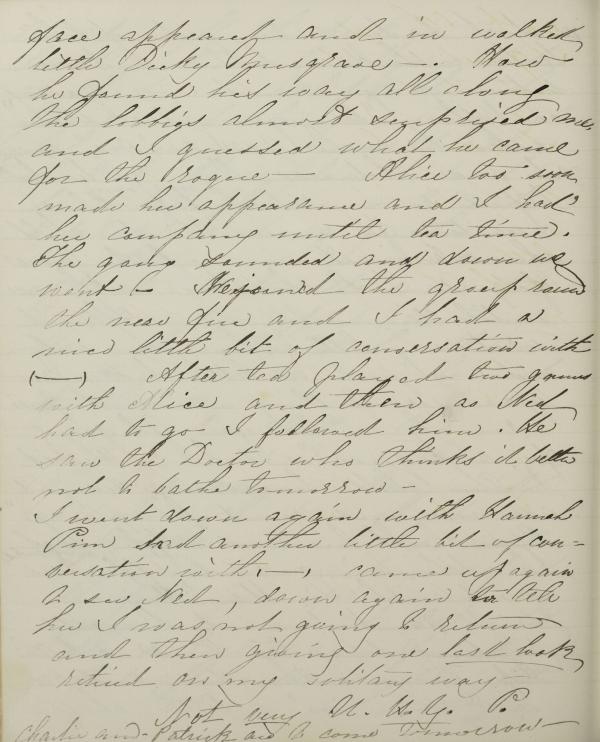 face appeared and in walked
little Dicky Musgrave —. How
he found his way all along
the lobbies almost surprised me,
and I guessed what he came
for the rogue — Alice too soon
made her appearance and I had
her company until tea time.
The gong sounded and down we
went & Rejoined the group round
the new fire and I had a
nice little bit of conversation with
(—) After tea played two games
with Alice and then as Ned
had to go I followed him. He
saw the Doctor who thinks it better
not to bathe tomorrow —
I went down again with Hannah
Pim had another little bit of con=
versation with, —, came up again
to see Ned, down again to tell
her I was not going to return
and then giving one last look
retired on my solitary way
Not very U. H. Y. P.
Charlie and Patrick are to come tomorrow —